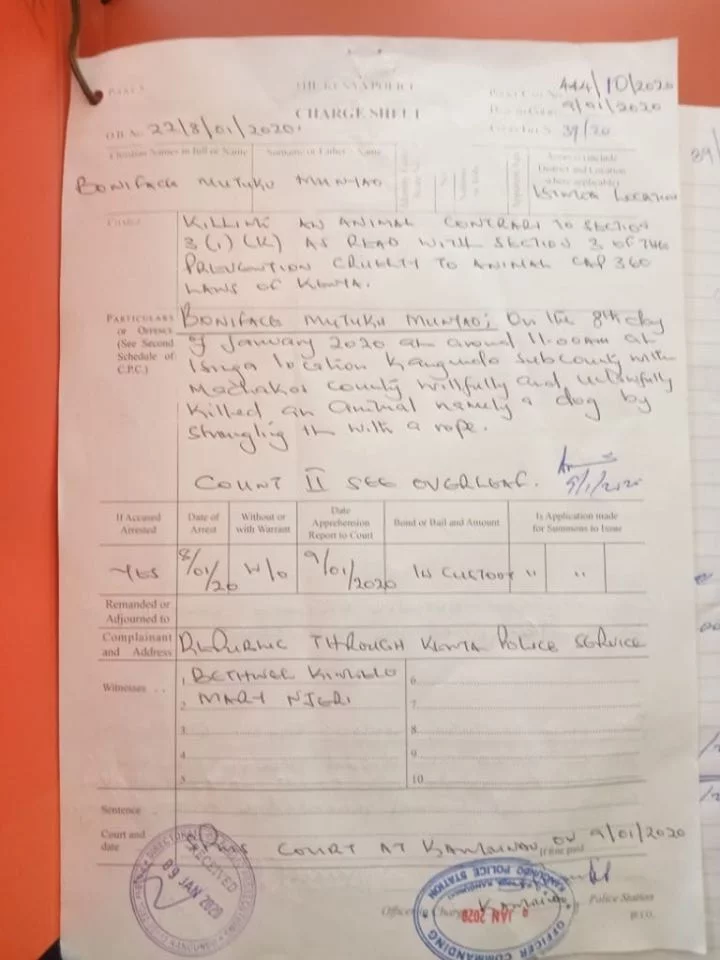 THE KENYA POLICE
444/10/2020
CHARGE SHEET
9/01/2020
O.B No. 22/8/01/2020.
39/20
BONIFACE MUTUKU MUNYAO
LOCATION
KILLING AN ANIMAL CONTRARY TO SECTION
3(1)(K) AS READ WITH SECTION 3 OF THE
PREVENTION CRUELTY TO ANIMAL CAP 360
LAWS OF KENYA.
PARTICULARS
or Offence
(See Second
Schedule of
C.P.C.)
BONIFACE MUTUKU MUNYAO; On the 8th day
of January 2020 at around 11.00am at
location Kangundo subcounty with
Machakos county willfully and unlawfully
killed an animal namely a dog by
strangling it with a rope.
COUNT II SEE OVERLEAF.
9/1/2020
If Accused Arrested
Date of Arrest
Without or with Warrant
Date Apprehension Report to Court
Bond or Bail and Amount
Is Application made for Summons to Issue
YES
8/01/20
W/O
9/01/2020
IN CUSTODY
"
"
Remanded or
Adjourned to
Complainant
and Address
REPUBLIC THROUGH KENYA POLICE SERVICE
Witnesses ..
1
6
2 MARY NJERI
7
3
8
4
9
5
10
Sentence
Court and
date
COURT AT KANGUNDO ON 9/01/2020
RECEIVED
09 JAN 2020
KANGUNDO POLICE STATION
9 JAN 2020
OFFICER COMMANDING
Officer in Charge
Police Station